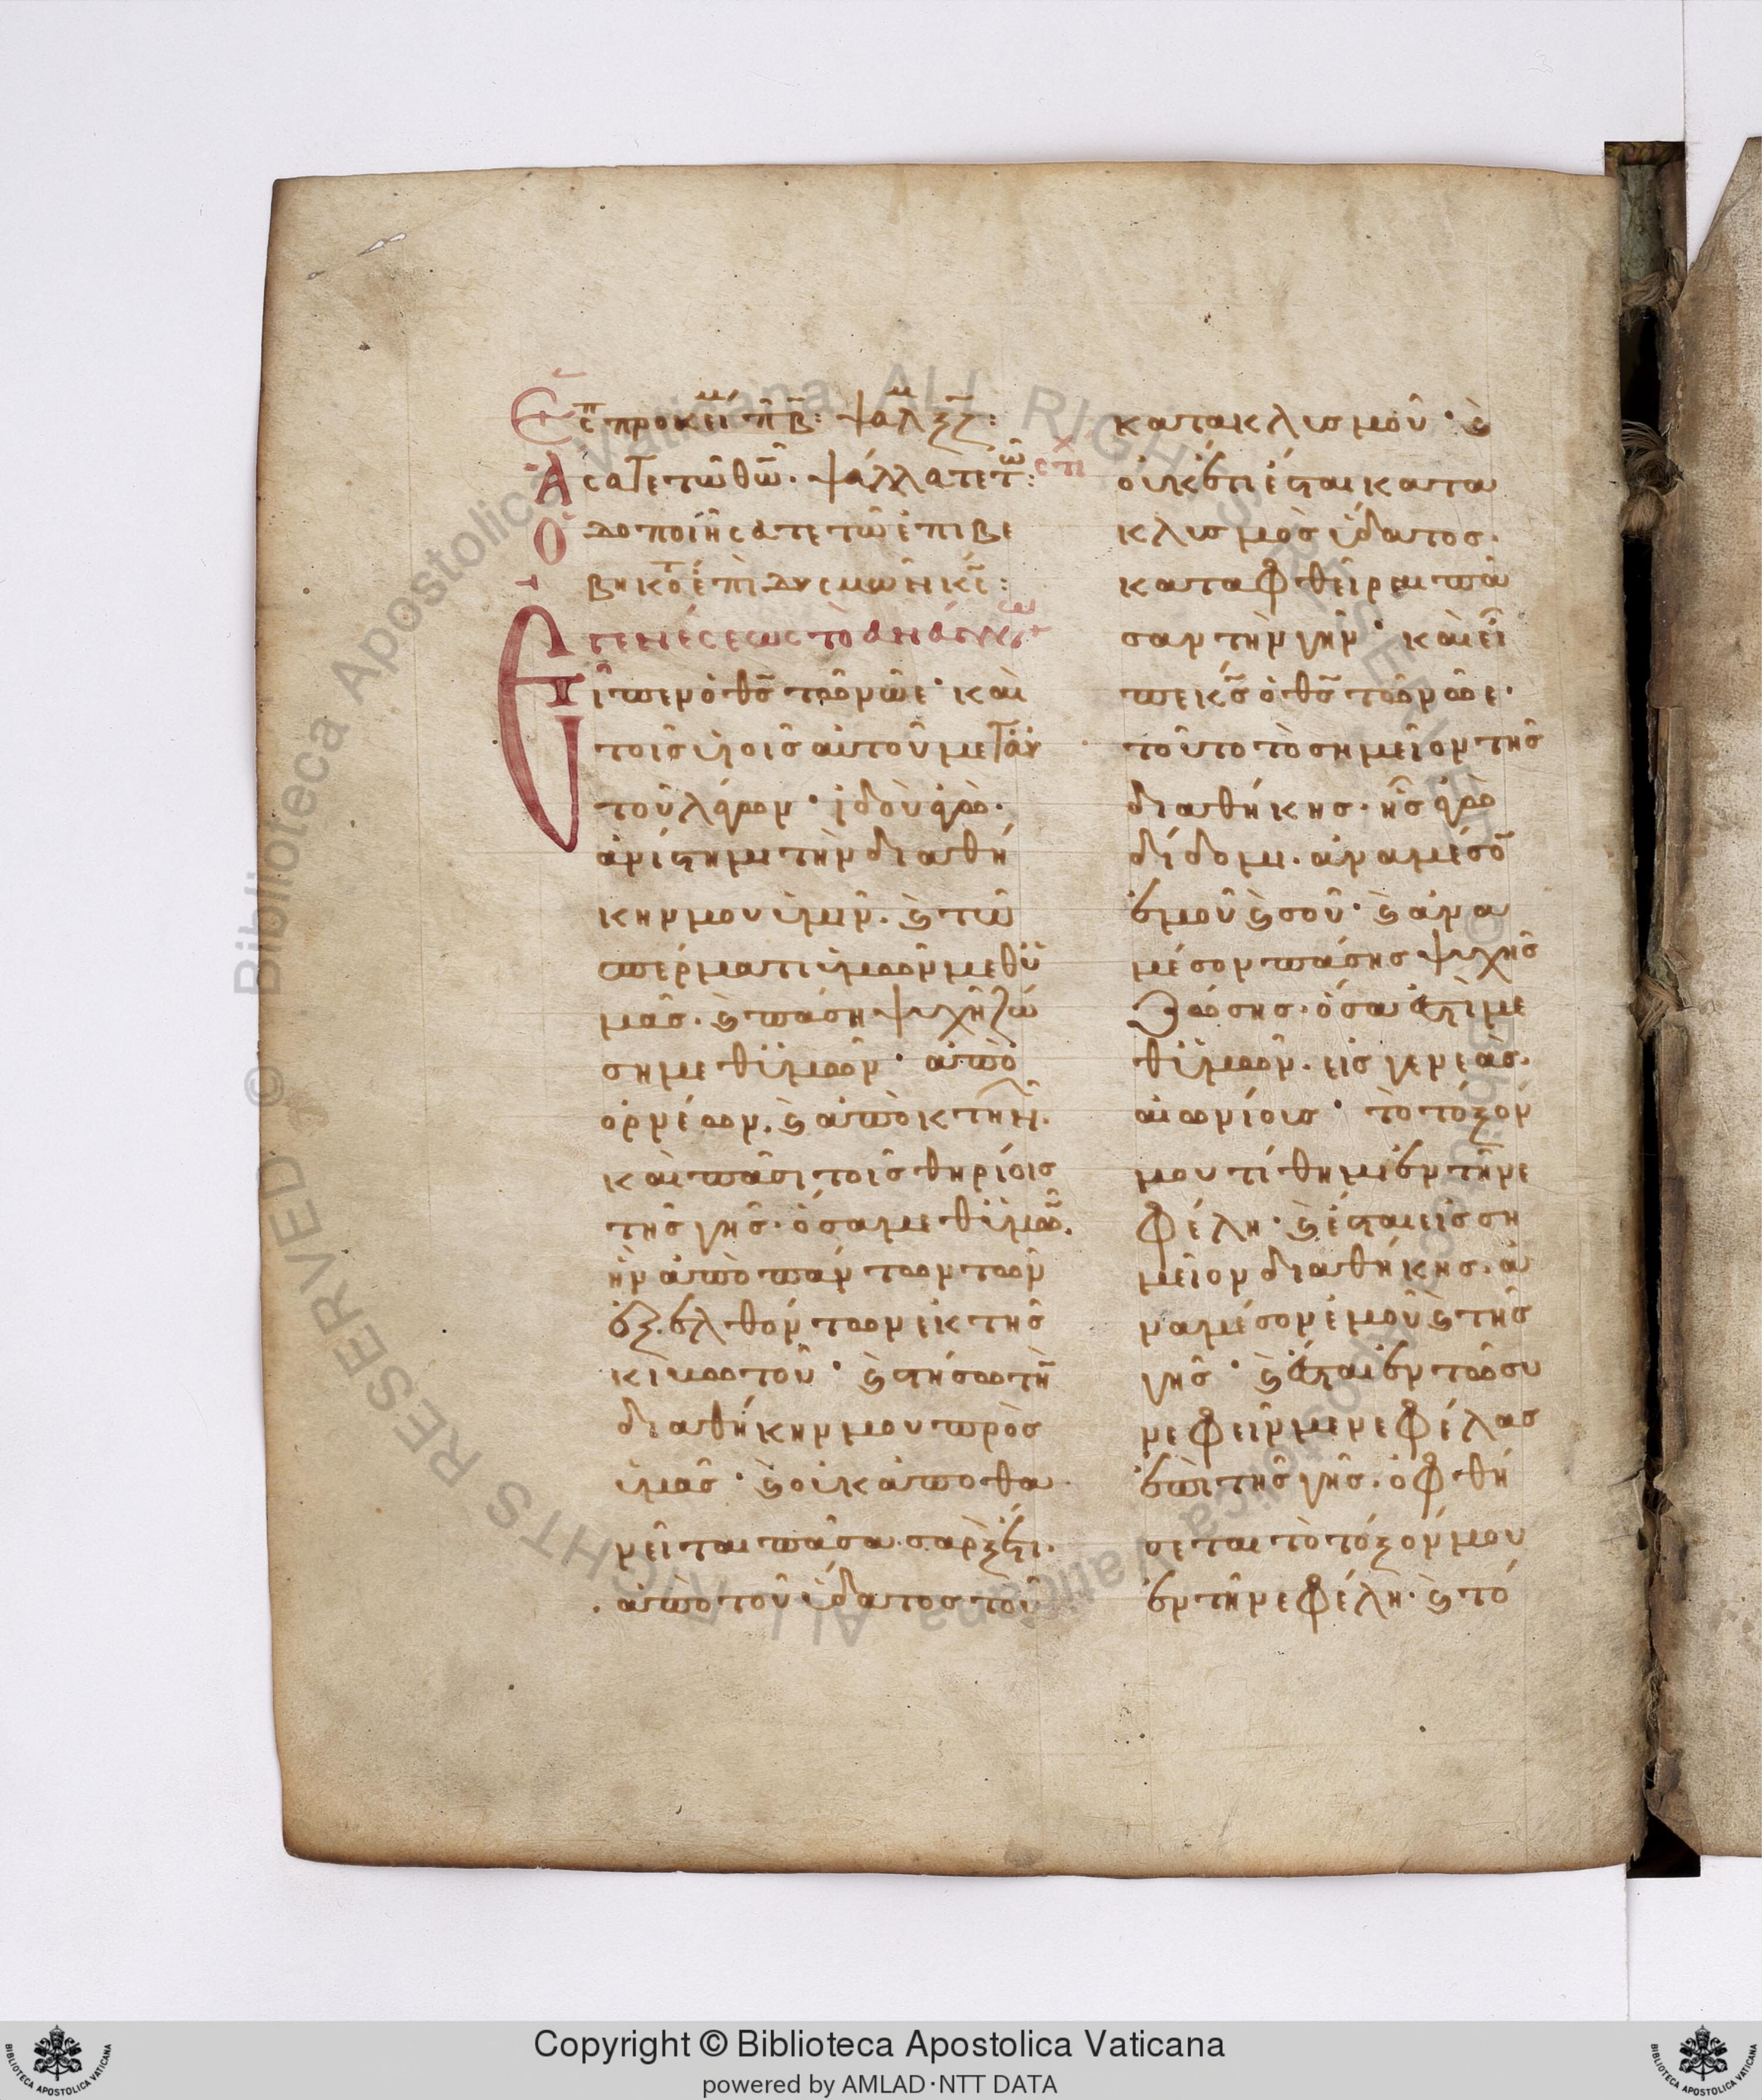 Ἑσπ προκεί πλ β: ψαλ ξζ:
Ἄσατε τῶ θῶ. ψάλλατε τῶ: στι
ὁδοποιήσατε τῶ ἐπιβε
βηκότ ἐπὶ δυσμῶν κς:
Γενέσεως τὸ ἀνάγνωσμ
Εἶπεν ὁ θς τῶ νῶε· καὶ
τοῖς υἱοῖς αὐτοῦ μετ αὐ
τοῦ λέγων· ἰδοὺ ἐγὼ.
ἀνίστημι τὴν διαθή
κην μου ὑμῖν. καὶ τῶ
σπέρματι ὑμῶν μεθ ὑ
μᾶς. καὶ πάση ψυχῆ ζώ
ση μεθ ὑμῶν· ἀπὸ
ὀρνέων. καὶ ἀπὸ κτηνῶν.
καὶ πᾶσι τοῖς θηρίοις
τῆς γῆς. ὅσα μεθ ὑμῶν.
ἦν ἀπὸ πάντων τῶν
ἐξελθόντων ἐκ τῆς
κιβωτοῦ· καὶ στήσω τὴν
διαθήκην μου πρὸς
ὑμᾶς· καὶ οὐκ ἀποθα
νεῖται πᾶσα σὰρξ ἔτι.
ἀπὸ τοῦ ὕδατος τοῦ
κατακλυσμοῦ· καὶ
οὐκ ἔτι ἔσται κατα
κλυσμὸς ὕδατος.
καταφθεῖραι πᾶ
σαν τὴν γῆν· καὶ εἶ
πε κς ὁ θς τῶ νῶε.
τοῦτο τὸ σημεῖον τῆς
διαθήκης. ἧς ἐγὼ
δίδομι. ἀναμέσον
ἐμοῦ καὶ σοῦ· καὶ ἀνα
μέσον πάσης ψυχῆς
ζώσης. ὅσα ἐστὶ με
θ ὑμῶν. εἰς γενεὰς.
αἰωνίοις· τὸ τόξον
μου τίθημι ἐν τῆ νε
φέλη· καὶ ἔσται εἰς ση
μεῖον διαθήκης. ἀ
ναμέσον ἐμοῦ καὶ τῆς
γῆς· καὶ ἔσται ἐν τῶ συ
νεφεῖν με νεφέλας
ἐπὶ τῆς γῆς. ὀφθή
σεται τὸ τόξον μου
ἐν τῆ νεφέλη. καὶ τό
Copyright © Biblioteca Apostolica Vaticana
powered by AMLAD·NTT DATA